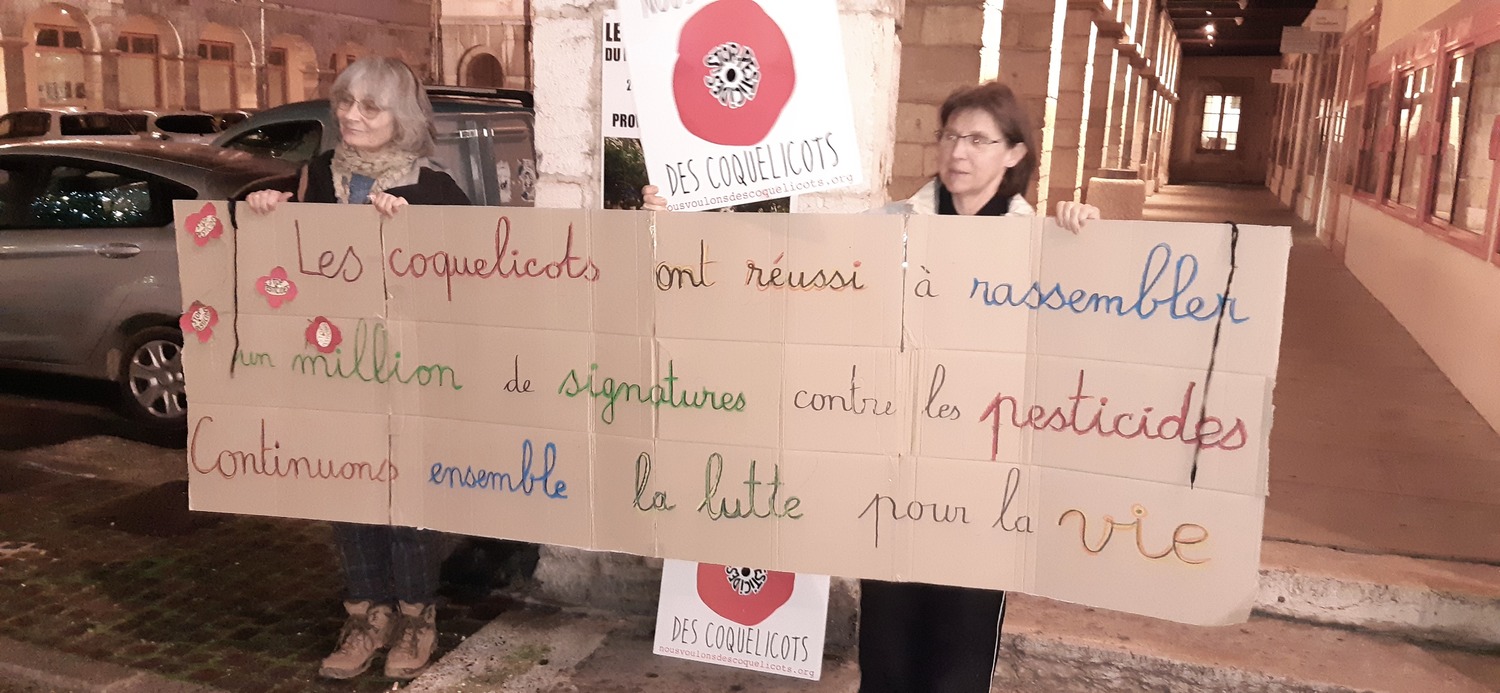 NOUS
DES COQUELICOTS
ousvoulonsdescoquelicots.org
LE
DU
2
PRO
Les coquelicots ont réussi à rassembler
un million de signatures contre les pesticides
Continuons ensemble la lutte pour la vie
PESTICIDES
DES COQUELICOTS
nousvoulonsdescoquelicots.org